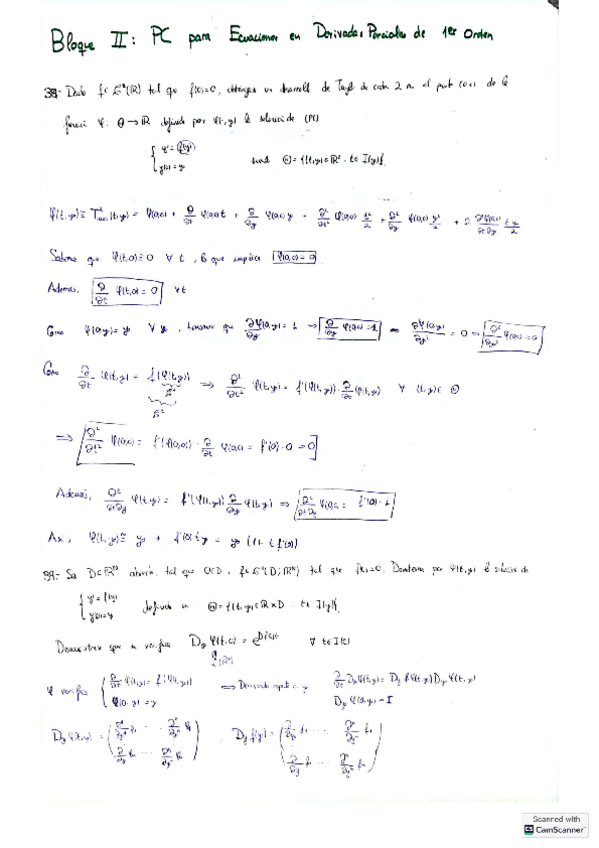 Bloque II: PC para Ecuaciones en Derivadas Parciales de 1er Orden
38.- Dado f∈ (ℝ) tal que f(0)=0, un desarrollo de Taylor de orden 2 en el punto (0,0) de la
función φ: Θ→ℝ definida por φ(t,y) la solución de (PC)
{ y' = f(y)
y(0) = y₀ Θ = {(t,y)∈ℝ² : t∈I(y)}
φ(t,y) ≅ T (t,y) = φ(0,0) + ∂/∂t φ(0,0) t + ∂/∂y φ(0,0) y + ∂²/∂t² φ(0,0) t²/2 + ∂²/∂y² φ(0,0) y²/2 + 2 ∂²φ(0,0)/∂t∂y ty/2
Sabemos que φ(t,0)≡0 ∀t, lo que implica φ(0,0)=0
Además, ∂/∂t φ(t,0) = 0 ∀t
Como φ(0,y)=y ∀y, tenemos que ∂φ(0,y)/∂y = 1 ⇒ ∂/∂y φ(0,0)=1 ⇒ ∂²φ(0,y)/∂y² = 0 ⇒ ∂²/∂y² φ(0,0)=0
Como ∂/∂t φ(t,y) = f(φ(t,y)) ⇒ ∂²/∂t² φ(t,y) = f'(φ(t,y)) · ∂/∂t φ(t,y) ∀ (t,y)∈Θ
⇒ ∂²/∂t² φ(0,0) = f'(φ(0,0)) · ∂/∂t φ(0,0) = f'(0) · 0 = 0
Además, ∂²/∂t∂y φ(t,y) = f'(φ(t,y)) ∂/∂y φ(t,y) ⇒ ∂²/∂t∂y φ(0,0) = f'(0) · 1
Así, φ(t,y) ≅ y + f'(0) t y = y (1 + t f'(0))
39.- Sea D⊂ℝᴺ abierto, tal que 0∈D, f∈ (D;ℝᴺ) tal que f(0)=0. Denotamos por φ(t,y) la solución de
{ y' = f(y)
y(0) = y definida en Θ = {(t,y)∈ℝ×D : t∈I(y)}
Demostrar que se verifica D_y φ(t,0) = e ∀ t∈I(0)
φ verifica { ∂/∂t φ(t,y) = f(φ(t,y)) ⇒ Derivando respecto a y ∂/∂t D_y φ(t,y) = D_y f(φ(t,y)) D_y φ(t,y)
φ(0,y) = y D_y φ(0,y) = I
D_y φ(t,y) = D_y f(y) =
Scanned with
CamScanner